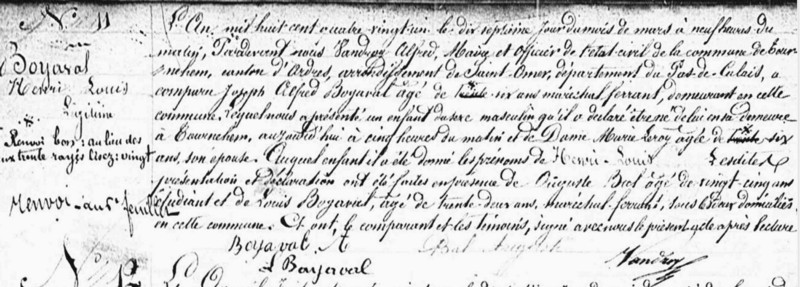 N° 11
Boyaval
Henri Louis
Légitime
Renvoi bon: au lieu des
mots trente rayés lisez: vingt
Renvoi
L'An mil huit cent quatre vingt-un le dix septième jour du mois de mars à neuf heures du
matin, Pardevant nous Vandroy Alfred, Maire et Officier de l'état civil de la commune de Tour-
nehem, canton d'Ardres, arrondissement de Saint-Omer, département du Pas-de-Calais, a
comparu Joseph Alfred Boyaval âgé de trente six ans, maréchal ferrant, demeurant en cette
commune. Lequel nous a présenté un enfant du sexe masculin qu'il a déclaré être né de lui en sa demeure
à Tournehem, aujourd'hui à cinq heures du matin et de Dame Marie Leroy âgée de trente six
ans, son épouse. Auquel enfant il a été donné les prénoms de Henri-Louis Lesdites
présentation et déclaration ont été faites en présence de Auguste Bual âgé de vingt-cinq ans
étudiant et de Louis Boyaval, âgé de trente-deux ans, maréchal-ferrant, tous deux domiciliés
en cette commune. Et ont, le comparant et les témoins, signé avec nous le présent acte après lecture
Boyaval A Bual Auguste Vandroy
L Boyaval
N° 12